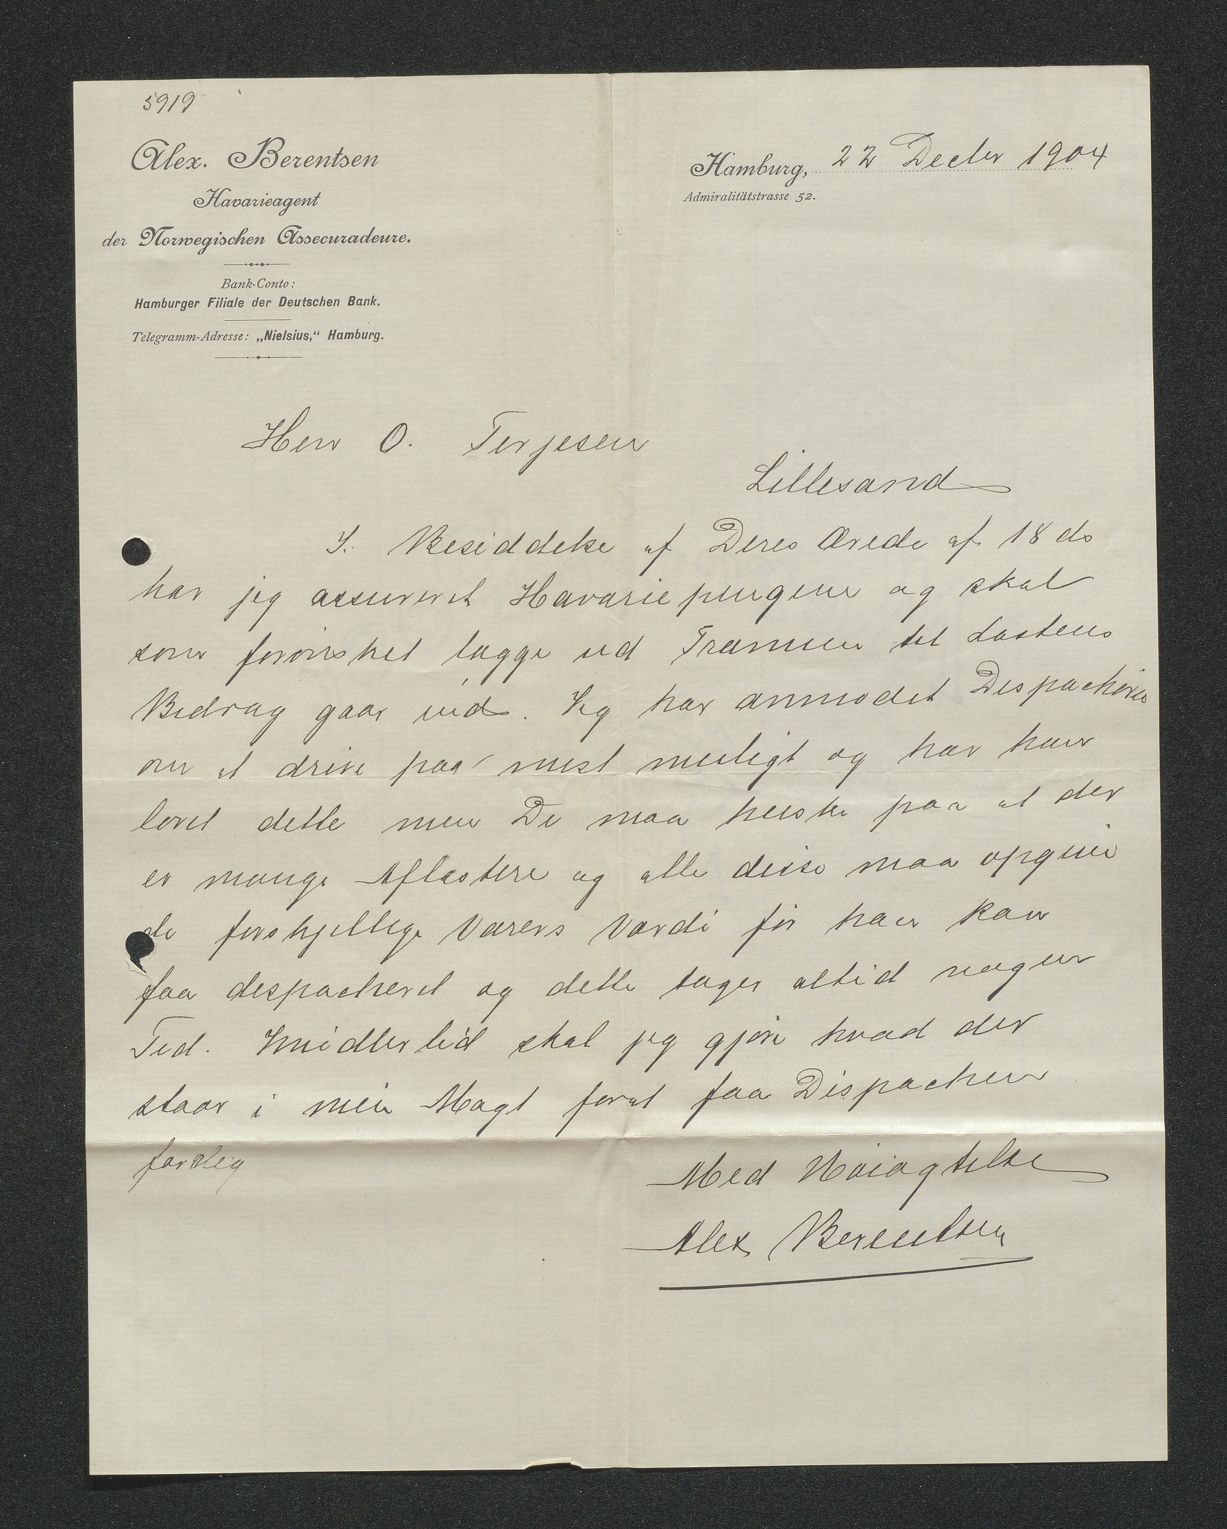 5919
Alex. Berentsen
Havarieagent
der Norwegischen Assecuradeure.
Bank-Conto:
Hamburger Filiale der Deutschen Bank.
Telegramm-Adresse: „Nielsius,“ Hamburg.
Hamburg, 22 Decbr 1904
Admiralitätstrasse 52.
Herr O. Terjesen
Lillesand
I Besiddelse af Deres Ærede af 18 ds
har jeg assureret Havariepengene og skal
som forönsket lægge ud Præmien til Lastens
Bedrag gaar ind. Jeg har anmodet Despachören
om at drive paa mest muligt og har han
lovet dette men De maa huske paa at der
er mange Afladere og alle disse maa opgive
de forskjellige Varers Værdi för han kan
faa despacheret og dette tager altid nogen
Tid. Imidlertid skal jeg gjöre hvad der
staar i min Magt forat faa Dispachen
færdig
Med Höiagtelse
Alex Berentsen